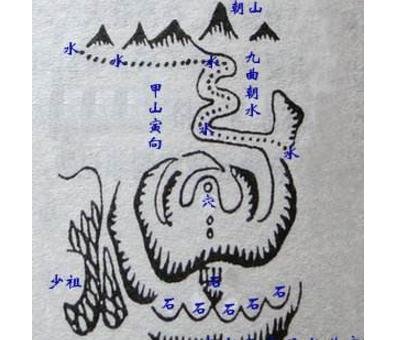 朝山
水
水
水
九曲朝水
甲山寅向
水
水
穴
少祖
石
石
石
石
石
石